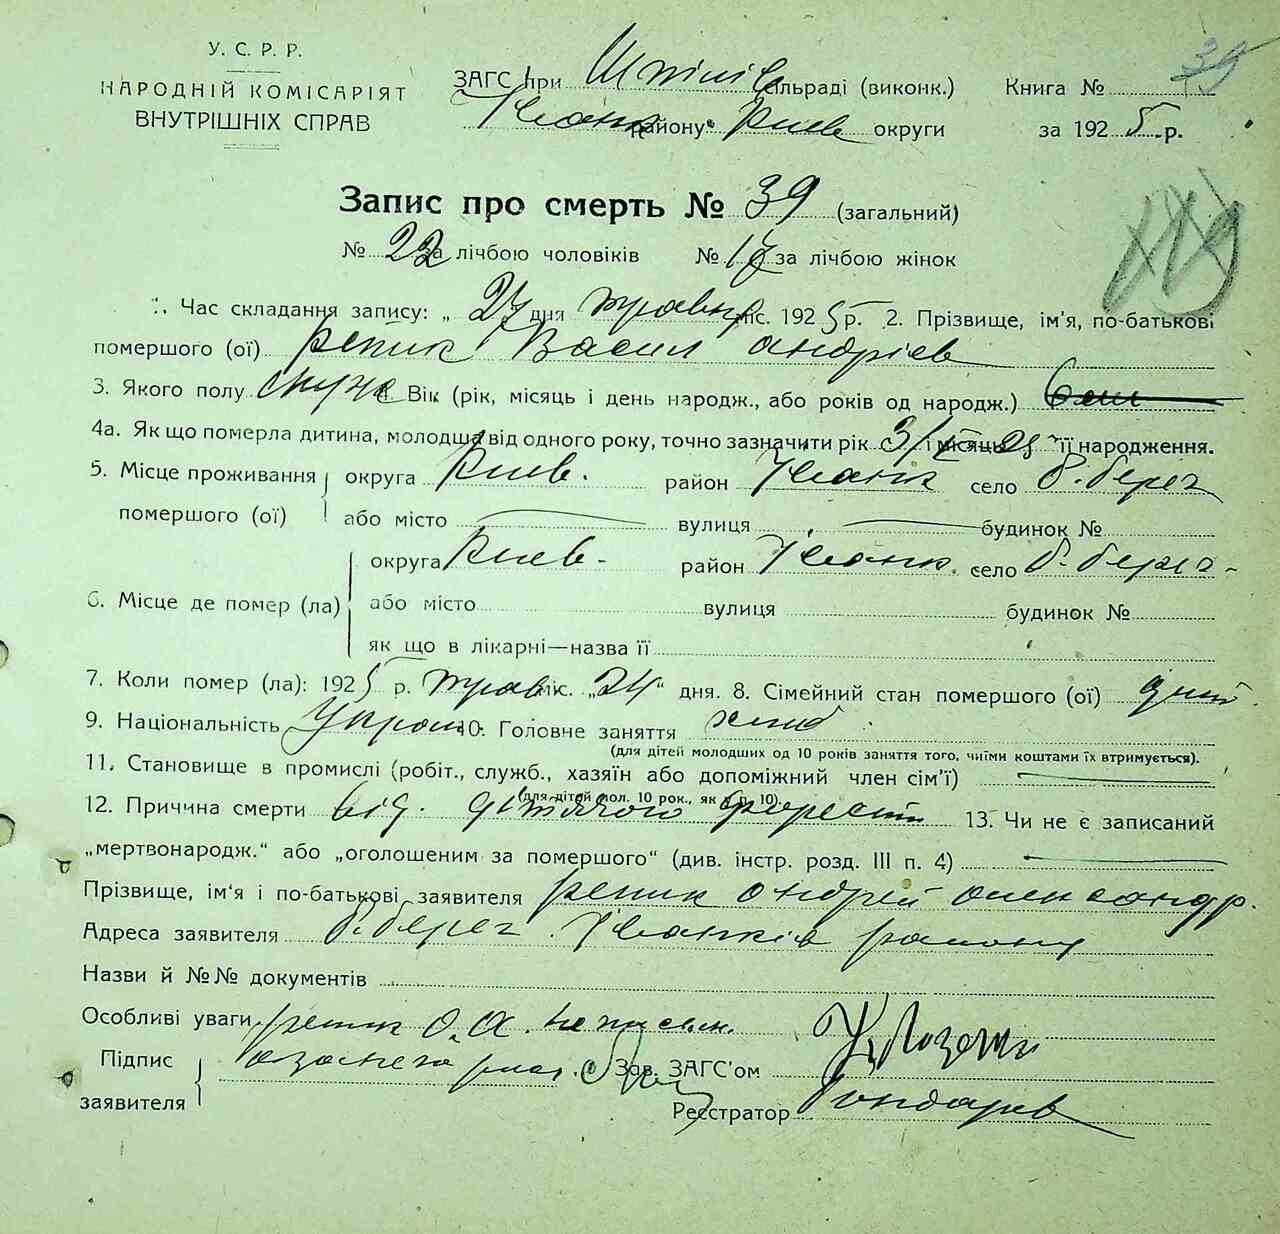 У. С. Р. Р.
НАРОДНІЙ КОМІСАРІЯТ
ВНУТРІШНІХ СПРАВ
ЗАГС при Шпилів сільраді (виконк.)
Іванк району Києв округи
Книга №
за 1925 р.
39
Запис про смерть № 39 (загальний)
№ 22 за лічбою чоловіків № 17 за лічбою жінок
1. Час складання запису: „ 27 дня травня міс. 1925 р. 2. Прізвище, ім'я, по-батькові
помершого (ої) Репик Васил Андріев
3. Якого полу Вік (рік, місяць і день народж., або років од народж.)
4а. Як що померла дитина, молодша від одного року, точно зазначити рік і місяць її народження.
5. Місце проживання помершого (ої) округа Києв. район Іванк село Р. берег
або місто вулиця будинок №
6. Місце де помер (ла) округа Києв. район Іванк. село Р. берег
або місто вулиця будинок №
як що в лікарні—назва її
7. Коли помер (ла): 1925 р. трав міс. „24“ дня. 8. Сімейний стан помершого (ої)
9. Національність Украін 10. Головне заняття хліб
(для дітей молодших од 10 років заняття того, чиїми коштами їх втримується).
11. Становище в промислі (робіт., служб., хазяїн або допоміжний член сім'ї)
(для дітей мол. 10 рок., як в п. 10).
12. Причина смерти від. дітячого 13. Чи не є записаний
„мертвонародж.“ або „оголошеним за помершого“ (див. інстр. розд. III п. 4)
Прізвище, ім'я і по-батькові заявителя Репик Андрей Олександр.
Адреса заявителя Р. берег Іванків району
Назви й №№ документів
Особливі уваги Репик О. А. неписьм.
Підпис заявителя а за него
Зав. ЗАГС'ом
Реєстратор Бондарев